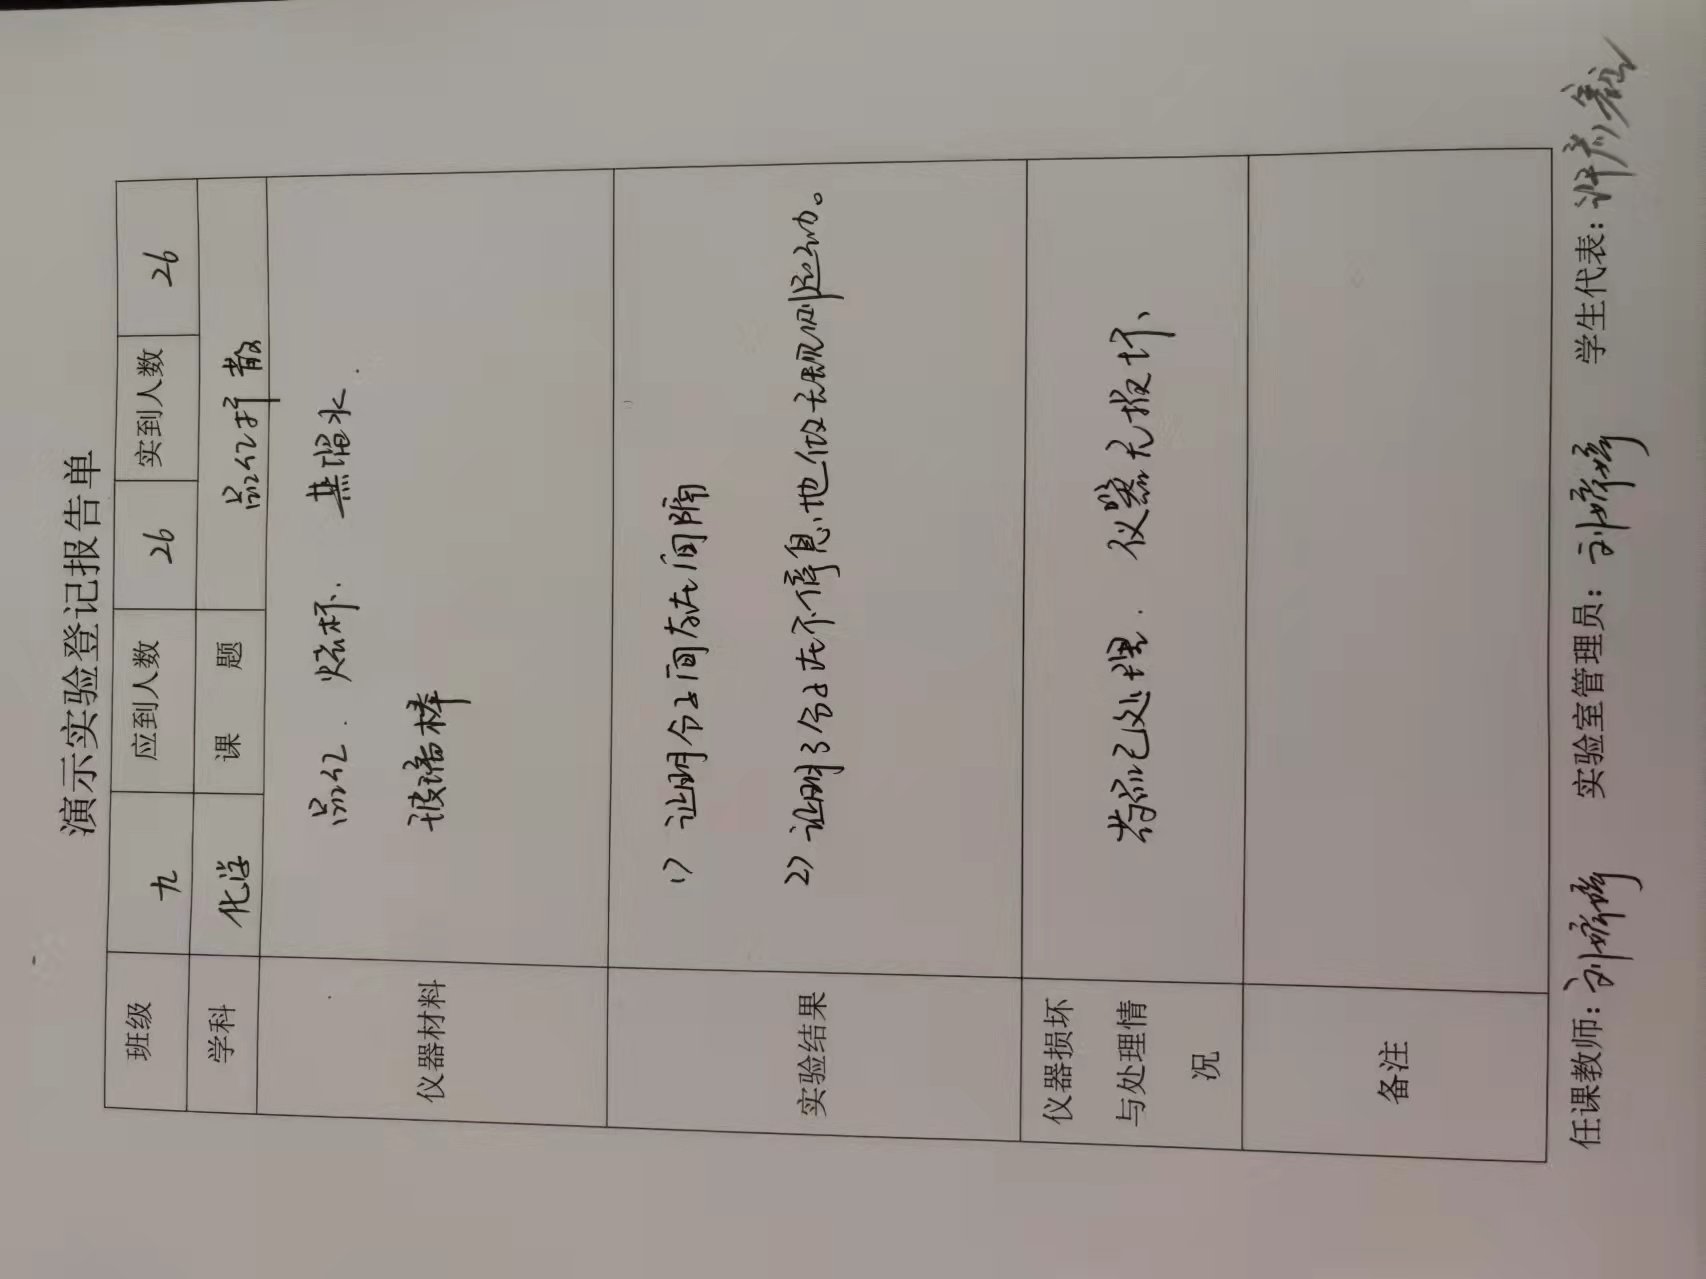 演示实验登记报告单
班级 九 应到人数 26 实到人数 26
学科 化学 课题 品红扩散
仪器材料
品红. 烧杯. 蒸馏水.
玻璃棒
实验结果
1) 证明分子间存在间隔
2) 证明了分子在不停息地做无规则运动。
仪器损坏
与处理情
况
药品已处理. 仪器无损坏、
备注
任课教师: 刘婷婷 实验室管理员: 刘婷婷 学生代表: 许